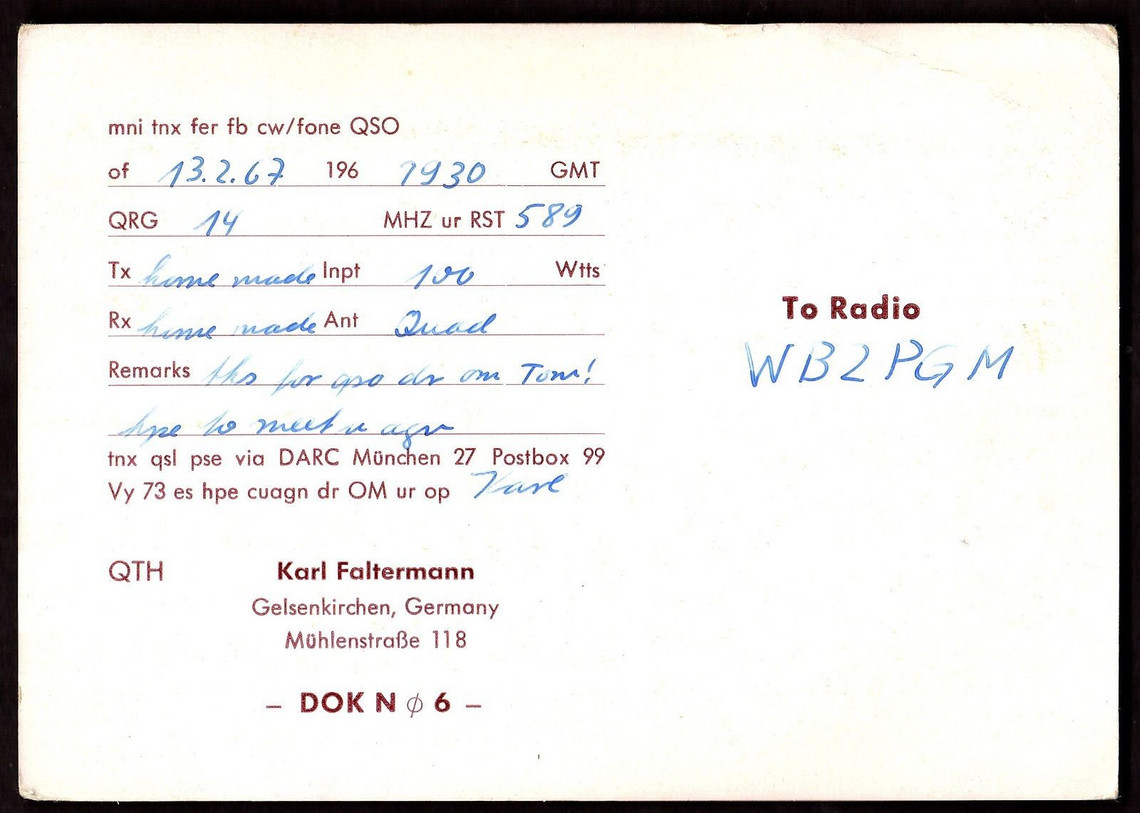 mni tnx fer fb cw/fone QSO
of 13.2.67 196 1930 GMT
QRG 14 MHZ ur RST 589
Tx home made Inpt 100 Wtts
Rx home made Ant Quad
Remarks tks for qso dr om Tom!
hpe to meet u agn
tnx qsl pse via DARC München 27 Postbox 99
Vy 73 es hpe cuagn dr OM ur op Karl
QTH Karl Faltermann
Gelsenkirchen, Germany
Mühlenstraße 118
– DOK N ϕ 6 –
To Radio
WB2PGM